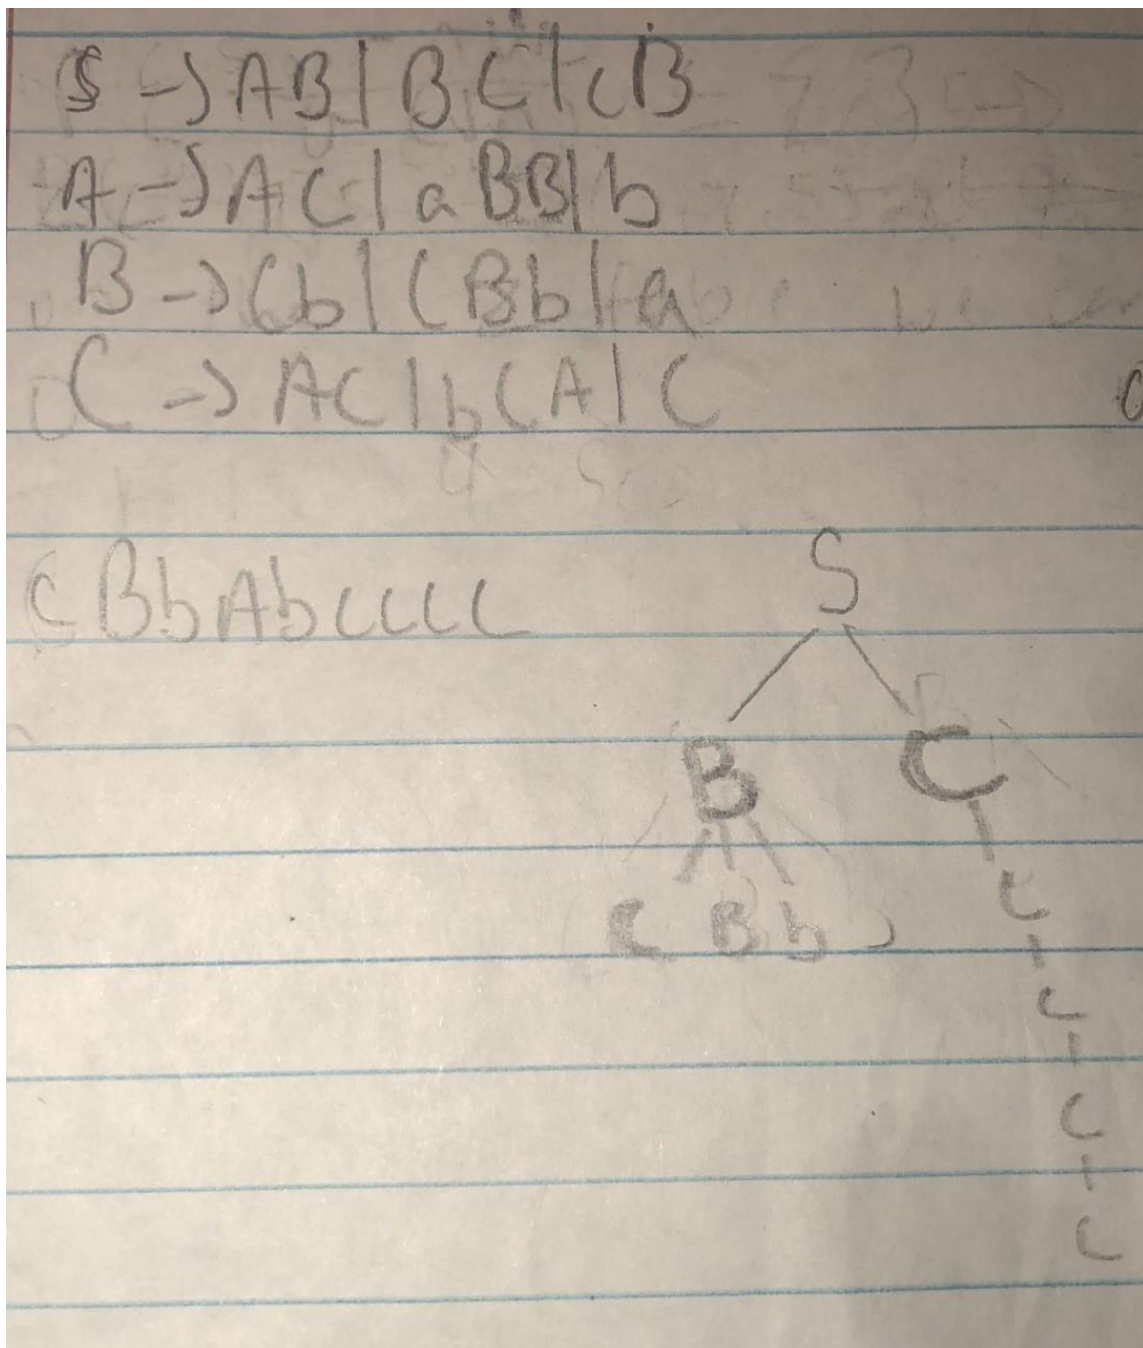 S → AB | BC | cB
A → AC | aBB | b
B → Cb | CBb | a
C → AC | bCA | C
CBbAbcccc
S
B C
C B b
c
c
c
c